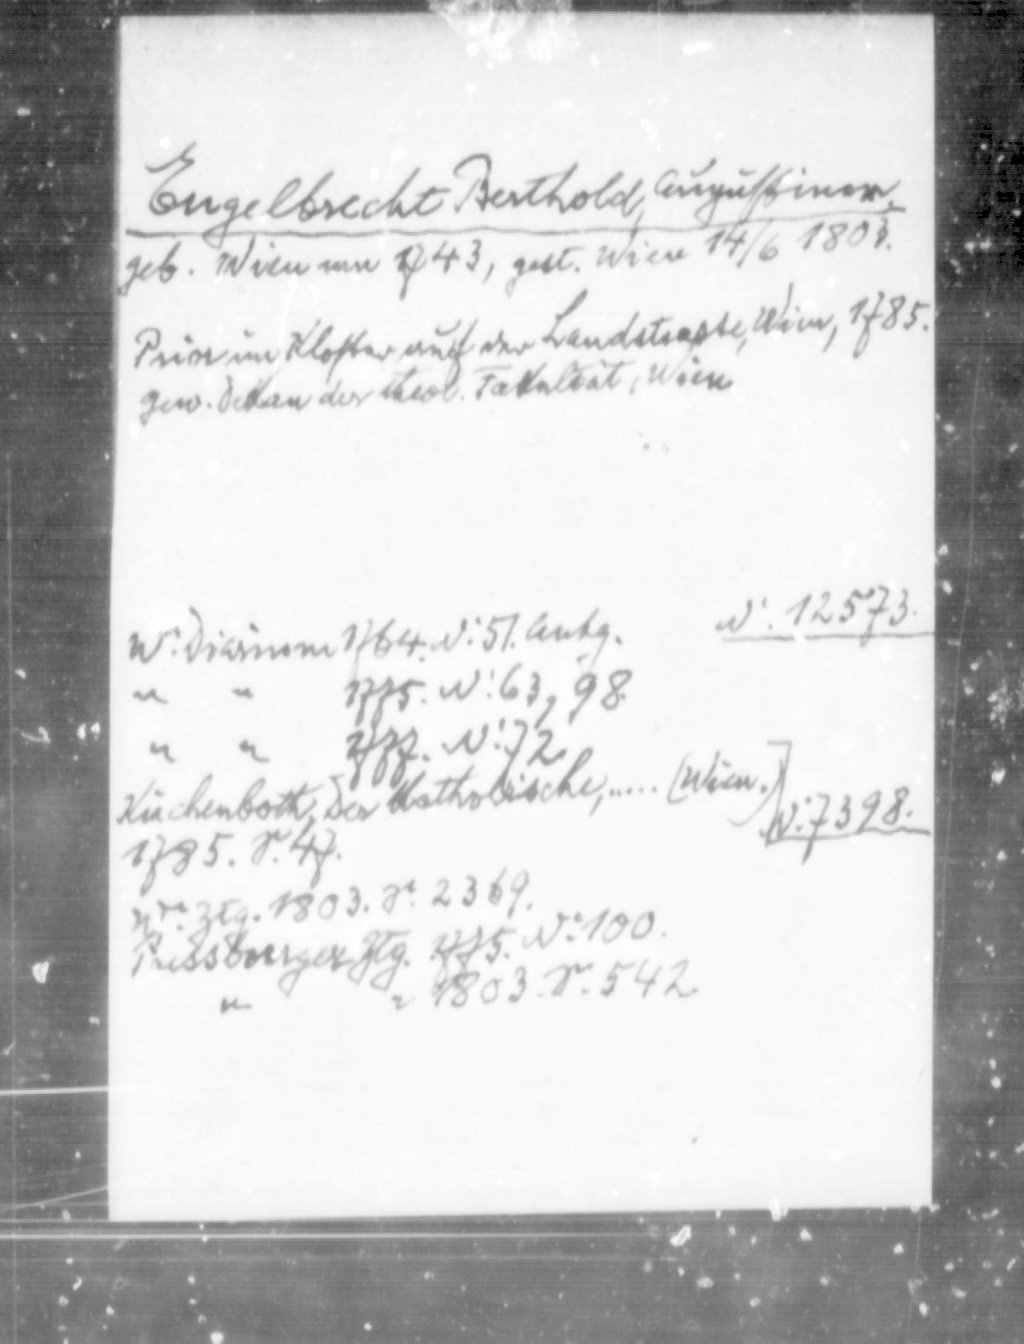 Engelbrecht Berthold, Augustiner,
geb. Wien um 1743, gest. Wien 14/6 1803.
Prior im Kloster auf der Landstrasse, Wien, 1785.
gew. Dekan der theol. Fakultät, Wien
Wr. Diarium 1764. Nr. 51. Anhg. Nr. 12573.
" " 1775. Nr. 63, 98.
" " 1777. Nr. 72.
Kirchenbothe, Der Katholische, ..... (Wien.) Nr. 7398.
1785. S. 47.
Wr. Ztg. 1803. S. 2369.
Pressburger Ztg. 1775. Nr. 100.
" " 1803. S. 542.